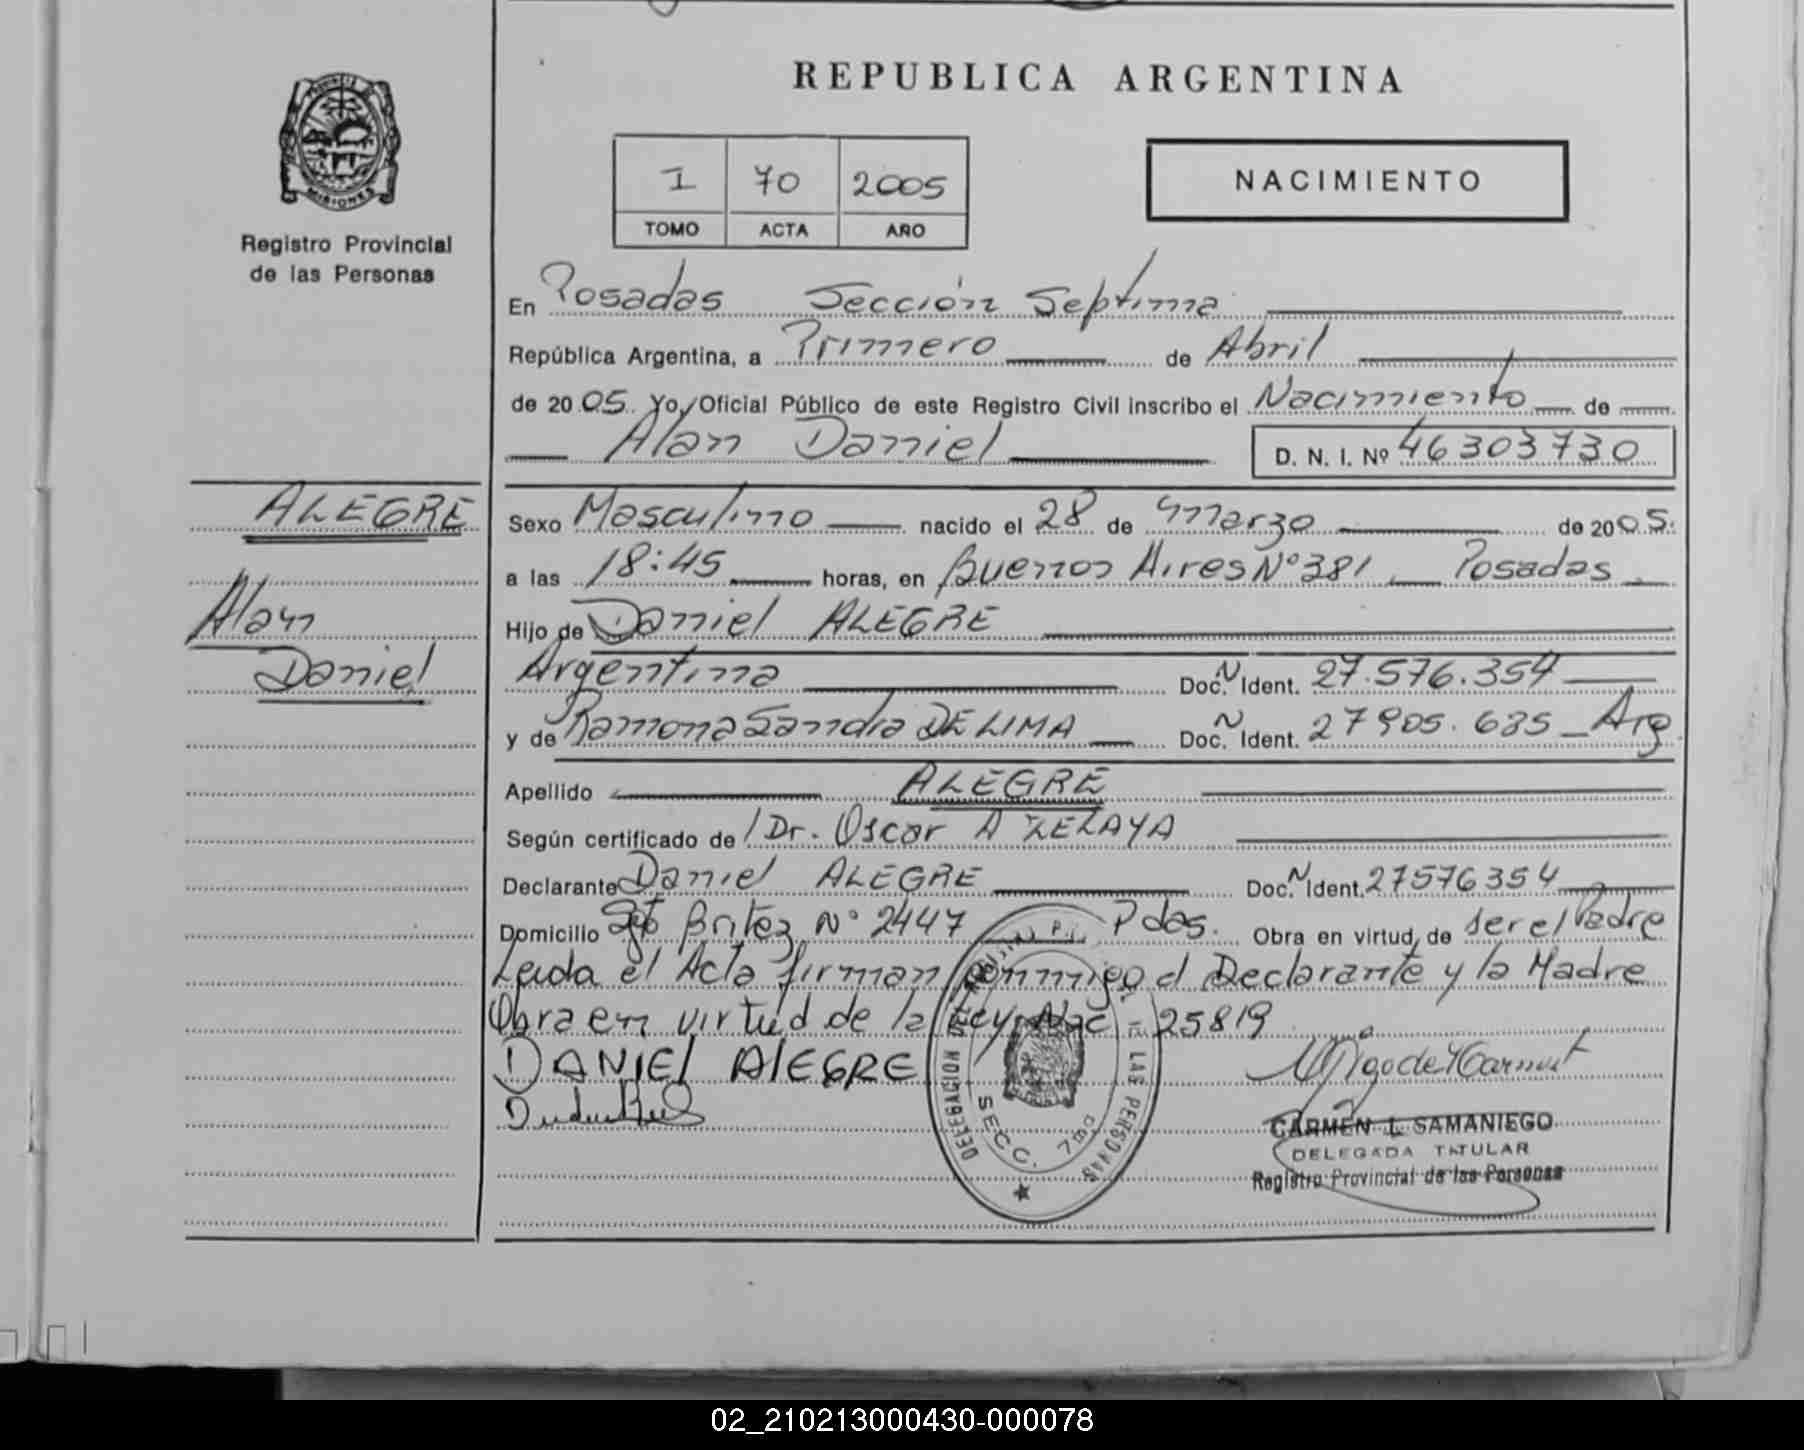 REPUBLICA ARGENTINA
I 70 2005
TOMO ACTA AÑO
NACIMIENTO
MISIONES
Registro Provincial
de las Personas
En Posadas Sección Septima
República Argentina, a Primero de Abril
de 2005. Yo, Oficial Público de este Registro Civil inscribo el Nacimiento de
Alan Daniel D. N. I. Nº 46303730
ALEGRE
Alan
Daniel
Sexo Masculino nacido el 28 de marzo de 2005.
a las 18:45 horas, en Buenos Aires Nº 381 Posadas
Hijo de Daniel ALEGRE
Argentina Doc. N Ident. 27.576.354
y de Ramona Sandra DE LIMA Doc. N Ident. 27905.635 Arg.
Apellido ALEGRE
Según certificado de Dr. Oscar A ZELAYA
Declarante Daniel ALEGRE Doc. N Ident. 27576354
Domicilio Sgto Britez Nº 2447 Pdas. Obra en virtud de ser el Padre
Leida el Acta firman conmigo el Declarante y la Madre
Obra en virtud de la Ley Nac 25819
DANIEL AlEGRE
DELEGACION DE LAS PERSONAS
SECC. 7ma
CARMEN L. SAMANIEGO
DELEGADA TITULAR
Registro Provincial de las Personas
02_210213000430-000078